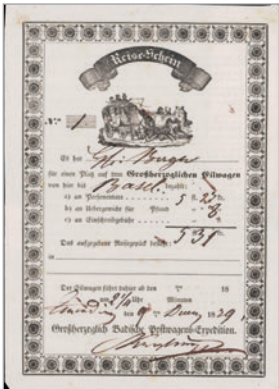 Reise-Schein
Nro. 1
Es hat Hr. Berger
für einen Platz auf dem Großherzoglichen Eilwagen
von hier bis Basel bezahlt:
a) an Personentaxe 5 fl. 25 kr.
b) an Uebergewicht für Pfund
c) an Einschreibgebühr
5 31
Das aufgegebene Reisegut
in
Der Eilwagen fährt dahier ab den 18
um Uhr Minuten
den 9 1839
Großherzoglich Badische Postwagens-Expedition.